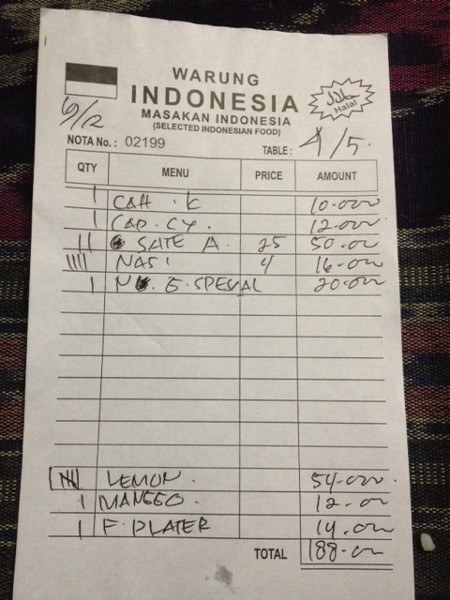 WARUNG
INDONESIA
MASAKAN INDONESIA
(SELECTED INDONESIAN FOOD)
حلال
Halal
6/12
NOTA No.: 02199
TABLE: 4/5.
QTY MENU PRICE AMOUNT
1 CAH . K 10.000
1 CAP. CY. 12.000
11 SATE A. 25 50.000
1111 NASI 4 16.000
1 N. G. SPESIAL 20.000
LEMON. 54.000
1 MANGGO. 12.000
1 F. PLATER 14.000
TOTAL 188.000